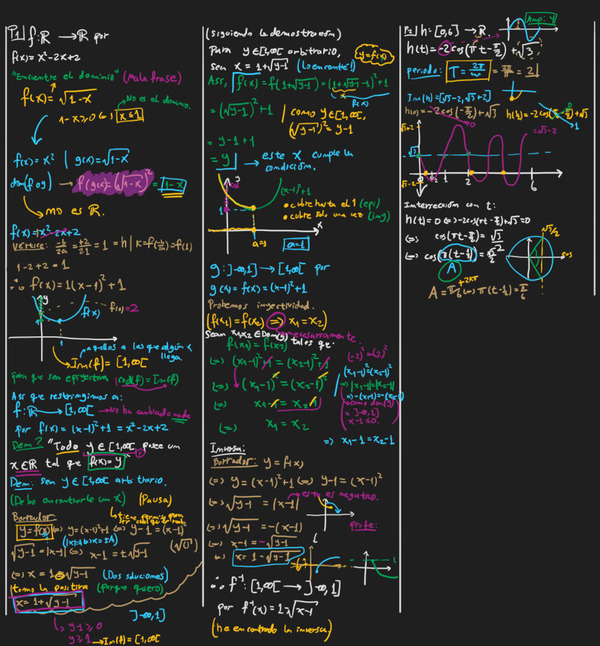 P1| f: ℝ → ℝ por
f(x) = x²-2x+2
"Encuentre el dominio" (Mala frase)
f(x) = √1-x
No es el dominio.
1-x ≥ 0 ⇔ x ≤ 1
f(x) = x² | g(x) = √1-x
dom(f∘g) → f(g(x)) = (√1-x)² = 1-x
→ no es ℝ.
f(x) = x²-2x+2
Vértice: -b/2a = +2/2·1 = 1 = h | k = f(-b/2a) = f(1)
1-2+2 = 1
∴ f(x) = 1(x-1)²+1
y
f(0) = 2
f(x)
1
aquellos a los que algún x llega.
→ Im(f) = [1,∞[
para que sea epiyectiva cod(f) = Im(f)
Así que restringimos a:
f: ℝ → [1,∞[ → No ha cambiado nada
por f(x) = (x-1)²+1 = x²-2x+2
Dem? "Todo y ∈ [1,∞[ posee un
x ∈ ℝ tal que f(x) = y"
Dem: sea y ∈ [1,∞[ arbitrario.
(Debo encontrarle un x) (Pausa)
Borrador
y = f(x) ⇔ y = (x-1)²+1 ⇔ y-1 = (x-1)²
√y-1 = |x-1| ⇔ x-1 = ±√y-1
⇔ x = 1 ± √y-1 (Dos soluciones)
tomo la positiva (porque quiero)
x = 1+√y-1
]-∞,1]
→ y-1 ≥ 0
y ≥ 1 → Im(f) = [1,∞[
(siguiendo la demostración)
Para y ∈ [1,∞[ arbitrario,
y = f(x)
sea x = 1+√y-1 (Lo encontré!)
Así, f(x) = f(1+√y-1) = (1+√y-1-1)²+1
f(x)
= (√y-1)²+1 | como y ∈ [1,∞[, (√y-1)² = y-1
= y-1+1
= y → este x cumple la condición.
y
(x-1)²+1
• cubre hasta el 1 (epi)
• cubre solo una vez (iny)
1
x
a=1
a=1
g: ]-∞,1] → [1,∞[ por
g(x) = f(x) = (x-1)²+1
Probemos inyectividad.
(f(x₁) = f(x₂) ⇒ x₁ = x₂)
necesariamente.
Sean x₁,x₂ ∈ Dom(g) tales que:
f(x₁) = f(x₂)
(-2)² = (2)²
⇔ (x₁-1)²+1 = (x₂-1)²+1
⇔ (x₁-1)² = (x₂-1)²
⇔ x₁-1 = x₂-1
⇔ x₁ = x₂
(x₁-1)² = (x₂-1)²
⇒ |x₁-1| = |x₂-1|
⇒ -(x₁-1) = -(x₂-1)
como dom(g) = ]-∞,1]
x-1 ≤ 0.
⇒ x₁-1 = x₂-1
Inversa:
Borrador: y = f(x)
⇔ y = (x-1)²+1 ⇔ y-1 = (x-1)²
⇔ √y-1 = |x-1| → esto es negativo.
⇔ √y-1 = -(x-1)
⇔ x-1 = -√y-1
x = 1-√y-1
∴ f⁻¹: [1,∞[ → ]-∞,1]
por f⁻¹(x) = 1-√x-1
(he encontrado la inversa)
P2| h = [0,6] → ℝ
h(t) = -2cos(πt-π/2)+√3
periodo: T = 2π/w = 2π/π = 2
Im(h) = [√3-2, √3+2]
h(0) = -2cos(-π/2)+√3
√3+2
√3
√3-2
1
2
6
t
Intersección con t:
h(t) = 0 ⇔ -2cos(πt-π/2)+√3 = 0
⇔ cos(πt-π/2) = √3/2
⇔ cos(π(t-1/2)) = √3/2
A
√3/2
cos
A = π/6 +2kπ ⇔ π(t-1/2) = π/6